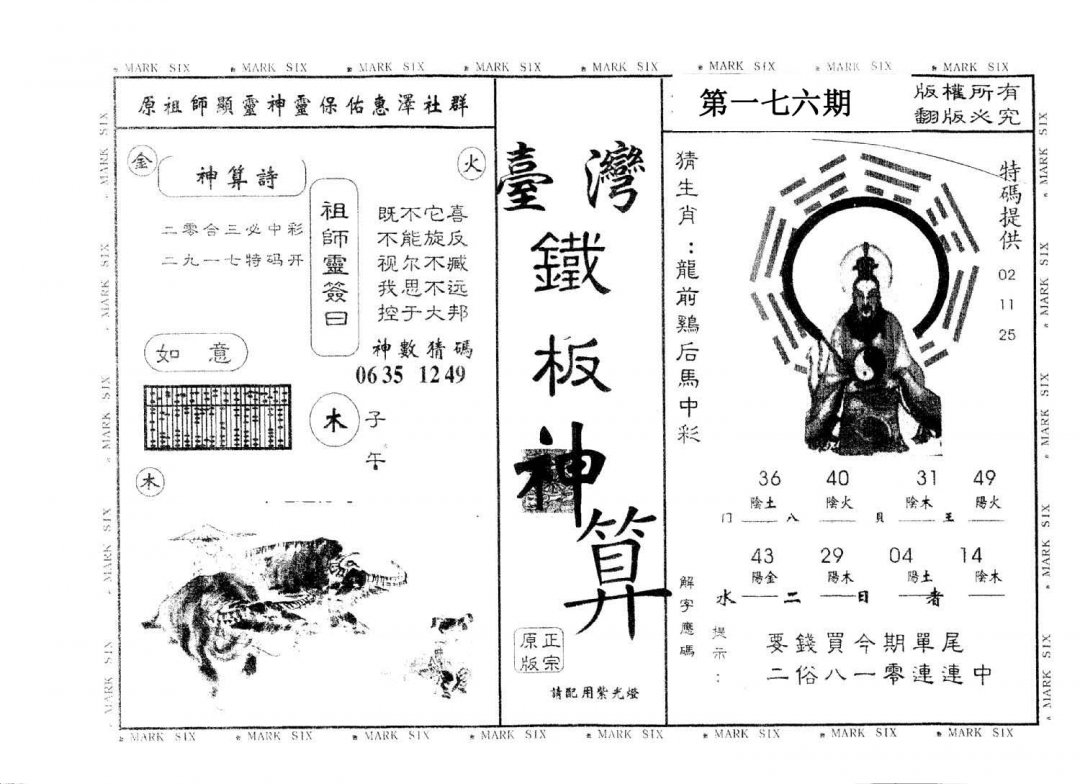 MARK SIX MARK SIX MARK SIX MARK SIX MARK SIX MARK SIX MARK SIX MARK SIX
原祖師顯靈神靈保佑惠澤社群
金
神算詩
火
二零合三必中彩
二九一七特码开
祖師靈簽曰
既不它喜
不能旋反
视尔不臧
我思不远
控于大邦
如意
神數猜碼
06 35 12 49
木
子
午
木
臺灣
鐵
板
神
算
正宗
原版
請配用紫光燈
第一七六期
版權所有
翻版必究
猜生肖:龍前鷄后馬中彩
特碼提供
02
11
25
36 40 31 49
陰土 陰火 陰木 陽火
门 八 貝 王
43 29 04 14
陽金 陽木 陽土 陰木
水 二 日 者
解字應碼
提示:
要錢買今期單尾
二俗八一零連連中
MARK SIX MARK SIX MARK SIX MARK SIX MARK SIX MARK SIX MARK SIX MARK SIX
MARK SIX MARK SIX MARK SIX MARK SIX MARK SIX
MARK SIX MARK SIX MARK SIX MARK SIX MARK SIX